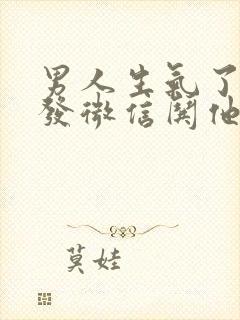 男人生氣了
發微信鬨他
莫娃